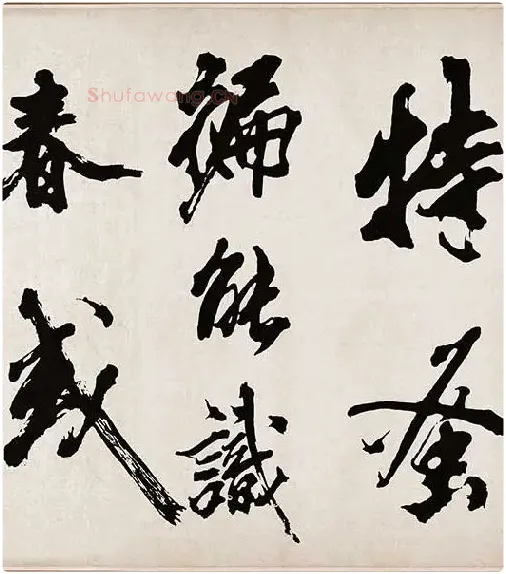 特蚤
徧能識
春
Shufawang.cn